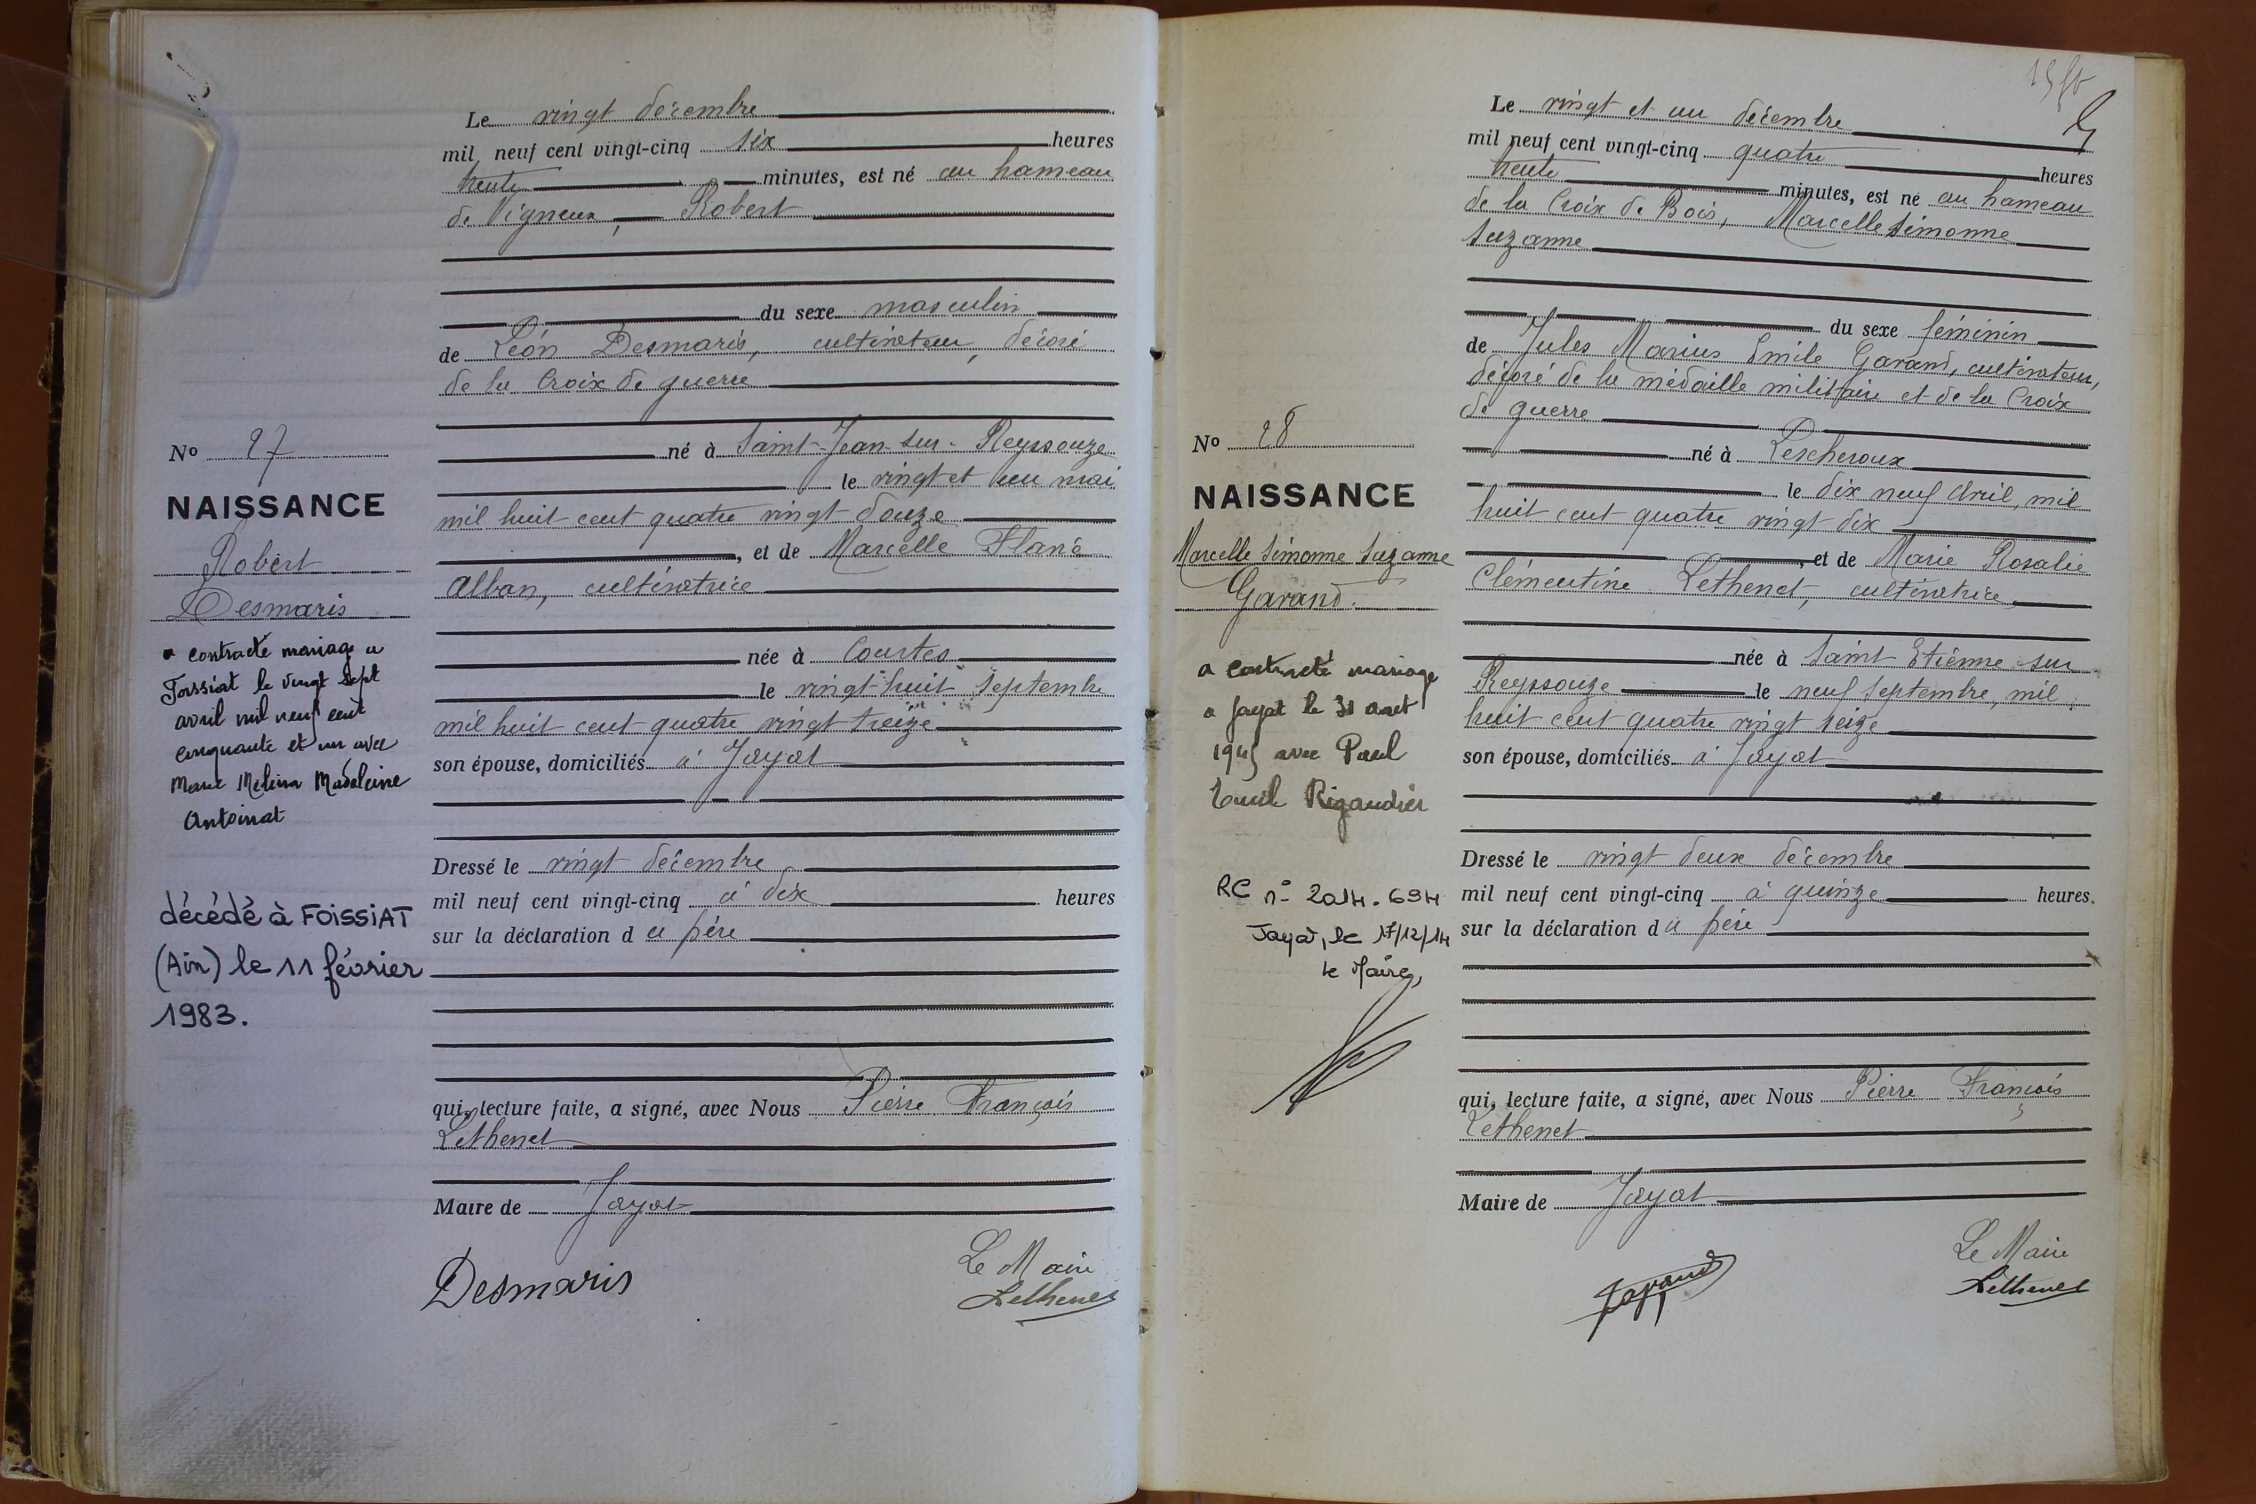 Le vingt décembre
mil neuf cent vingt-cinq six heures
trente minutes, est né au hameau
de Vigneux, Robert
du sexe masculin
de Léon Desmaris, cultivateur, décoré
de la Croix de guerre
né à Saint-Jean-sur-Reyssouze
le vingt et un mai
mil huit cent quatre vingt douze
, et de Marcelle
Alban, cultivatrice
née à Courtes
le vingt huit septembre
mil huit cent quatre vingt treize
son épouse, domiciliés à Jayat
Dressé le vingt décembre
mil neuf cent vingt-cinq à dix heures
sur la déclaration du père
qui, lecture faite, a signé, avec Nous Pierre François
Lethenet
Maire de Jayat
Desmaris
Le Maire
Lethenet
No 27
NAISSANCE
Robert
Desmaris
a contracté mariage a
Foissiat le vingt sept
avril mil neuf cent
cinquante et un avec
Marie Melina Madeleine
Antoinat
décédé à FOISSIAT
(Ain) le 11 février
1983.
Le vingt et un décembre
mil neuf cent vingt-cinq quatre heures
trente minutes, est né au hameau
de la Croix de Bois, Marcelle Simonne
Suzanne
du sexe féminin
de Jules Marius Emile Garand, cultivateur,
décoré de la médaille militaire et de la Croix
de guerre
né à Lescheroux
le dix neuf avril, mil
huit cent quatre vingt dix
, et de Marie Rosalie
Clémentine Lethenet, cultivatrice
née à Saint Etienne sur
Reyssouze le neuf septembre, mil
huit cent quatre vingt seize
son épouse, domiciliés à Jayat
Dressé le vingt deux décembre
mil neuf cent vingt-cinq à quinze heures.
sur la déclaration du père
qui, lecture faite, a signé, avec Nous Pierre François
Lethenet
Maire de Jayat
Garand
Le Maire
Lethenet
No 28
NAISSANCE
Marcelle Simonne Suzanne
Garand.
a contracté mariage
a Jayat le 31 aout
1945 avec Paul
Emile Rigaudier
RC n° 2014.694
Jayat, le 17/12/14
Le Maire,